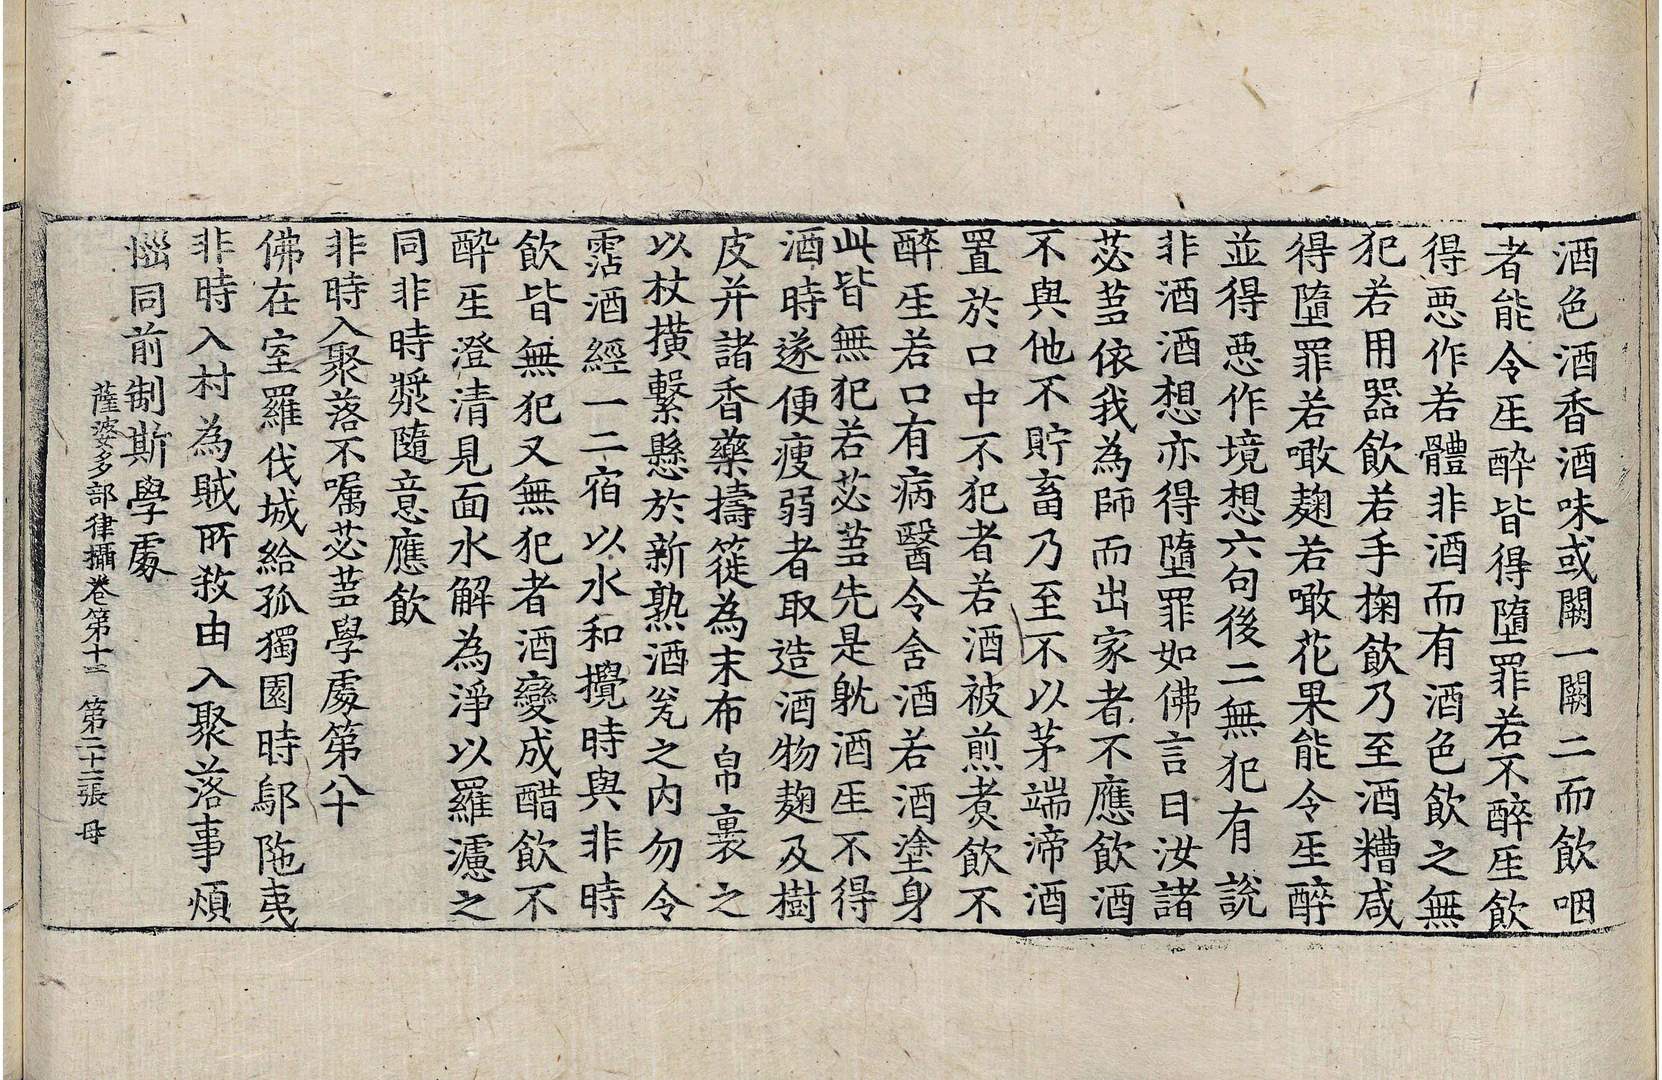 酒色酒香酒味或闕一闕二而飮咽
者能令生醉皆得墮罪若不醉生飮
得惡作若體非酒而有酒色飮之無
犯若用器飮若手掬飮乃至酒糟咸
得墮罪若噉麹若噉花果能令生醉
並得惡作境想六句後二無犯有說
非酒酒想亦得墮罪如佛言曰汝諸
苾蒭依我為師而出家者不應飮酒
不與他不貯畜乃至不以茅端渧酒
置於口中不犯者若酒被煎煑飮不
醉生若口有病醫令含酒若酒塗身
此皆無犯若苾蒭先是躭酒生不得
酒時遂便瘦弱者取造酒物麹及樹
皮并諸香藥擣簁為末布帛裹之
以杖撗繫懸於新熟酒瓮之內勿令
霑酒經一二宿以水和攪時與非時
飮皆無犯又無犯者酒變成醋飮不
醉生澄清見面水解為淨以羅濾之
同非時漿隨意應飮
非時入聚落不囑苾蒭學處第八十
佛在室羅伐城給孤獨園時鄔陁夷
非時入村為賊所敎由入聚落事煩
惱同前制斯學處
薩婆多部律攝卷第十三 第二十三張 母